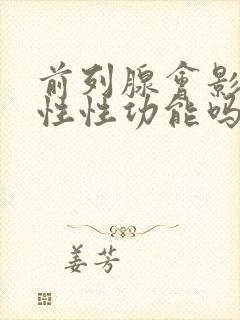 前列腺會影
性性功能吗
姜芳